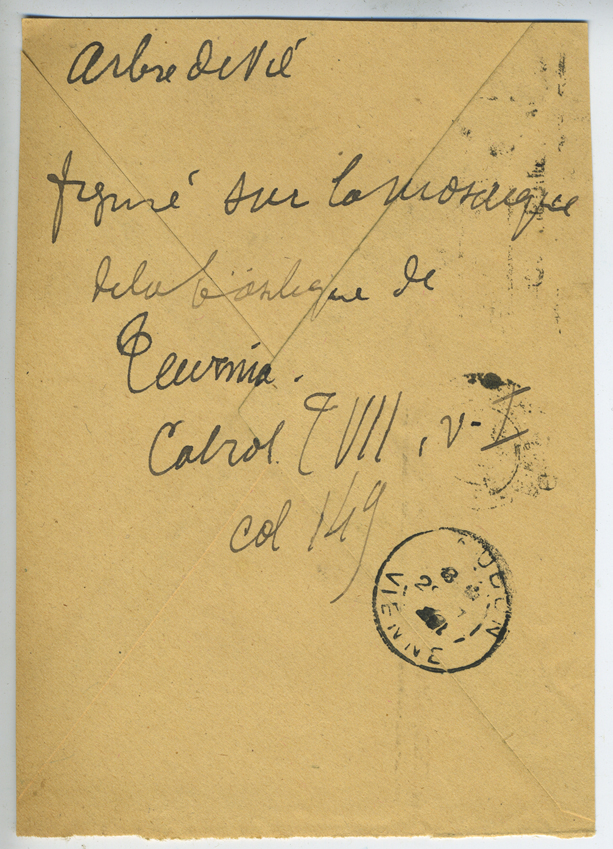 Arbre de Vié
figuré sur la mosaique
dela basilique de
Teurnia.
Cabrol T VII, v-I
col 149
VIENNE